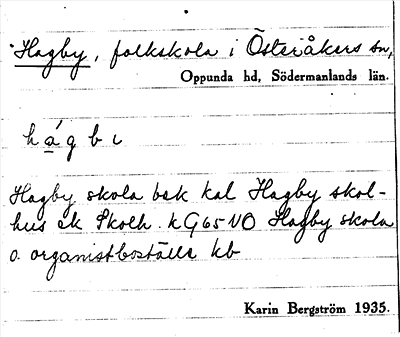 Hagby, folkskola i Österåkers sn,
Oppunda hd, Södermanlands län.
hágbı
Hagby skola bek kal Hagby skol-
hus ek Skolh. kG65NO Hagby skola
o. organistboställe kb
Karin Bergström 1935.